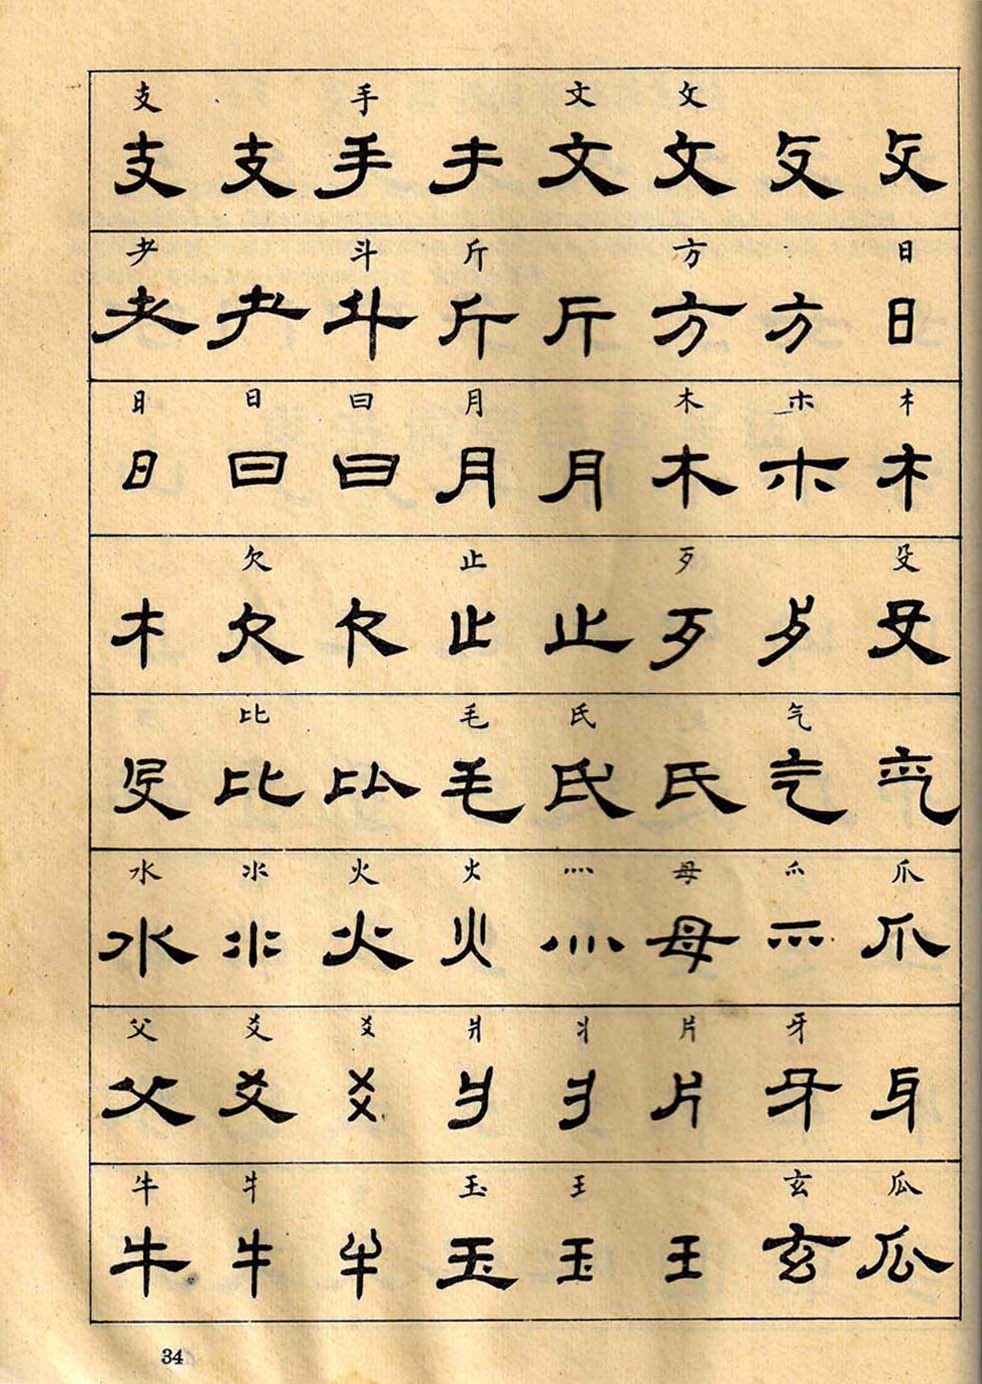 支 手 文 攵
支 支 手 手 文 攵 攵 攵
耂 斗 斤 方 日
耂 耂 斗 斤 斤 方 方 日
日 日 曰 月 木 木 木
日 曰 曰 月 月 木 木 木
欠 止 歹 殳
木 欠 欠 止 止 歹 歹 殳
比 毛 氏 气
殳 比 比 毛 氏 氏 气 气
水 氺 火 火 灬 母 爫 爪
水 氺 火 火 灬 母 爫 爪
父 爻 爻 爿 丬 片 牙
父 爻 爻 爿 丬 片 牙 牙
牛 牜 玉 王 玄 瓜
牛 牛 牛 玉 玉 王 玄 瓜
34